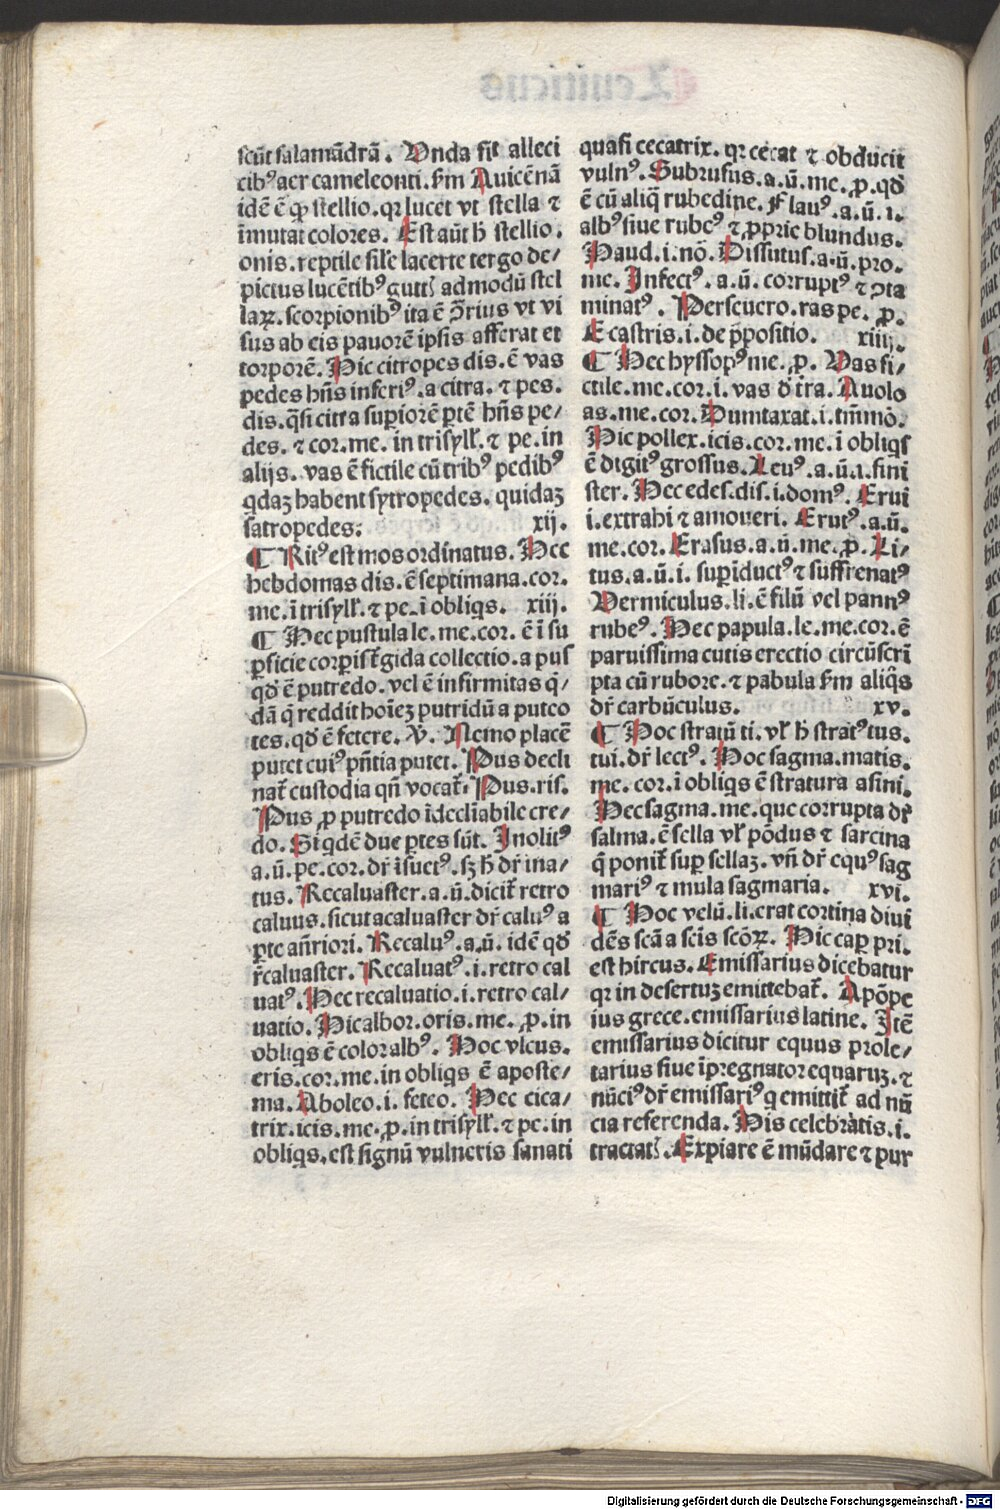 scūt salamādrā. Vnda fit alleci
cib⁹ aer cameleonti. s̄m Auicēnā
idē ē qd̄ stellio. qr lucet vt stella ⁊
īmutat colores. Est aūt h̄ stellio.
onis. reptile sil̄e lacerte tergo de/
pictus lucētib⁹ gutt̄ ad modū stel
laꝝ. scorpionib⁹ ita ē ꝯ̄rius vt vi
sus ab eis pauorē ipsis afferat et
torporē. Hic citropes dis. ē vas
pedes hn̄s inferi⁹. a citra. ⁊ pes.
dis. q̄si citra supiorē ꝑtē hn̄s pe/
des. ⁊ cor. me. in trisyll̄. ⁊ pe. in
alijs. vas ē fictile cū trib⁹ pedib⁹
qdaꝫ habent sytropedes. quidaꝫ
satropedes. xij.
¶ Rit⁹ est mos ordinatus. Hec
hebdomas dis. ē septimana. cor.
me. ī trisyll̄. ⁊ pe. ī obliqs. xiij.
¶ Hec pustula le. me. cor. ē ī su
ꝑficie corꝑis t̄gida collectio. a pus
qd̄ ē putredo. vel ē infirmitas q̄/
dā q̄ reddit hoīeꝫ putridū a puteo
tes. qd̄ ē fetere. V̄. Nemo placē
putet cui⁹ pn̄tia putet. Pus decli
nat̄ custodia qn̄ vocat̄. Pus. ris.
Pus ꝓ putredo īdecliabile cre/
do. Siqdē due ꝑtes sūt. Inolit⁹
a. ū. pe. cor. dr̄ īsuet⁹. sꝫ h̄ dr̄ ina/
tus. Recaluaster. a. ū. dicit̄ retro
caluus. sicut acaluaster dr̄ calu⁹ a
ꝑte an̄riori. Recalu⁹. a. ū. idē qd̄
r̄caluaster. Recaluat⁹. i. retro cal
uat⁹. Hec recaluatio. i. retro cal/
uatio. Hic albor. oris. me. ꝓ. in
obliqs ē color alb⁹. Hoc vlcus.
eris. cor. me. in obliqs ē aposte/
ma. Aboleo. i. feteo. Hec cica/
trix. icis. me. ꝓ. in trisyll̄. ⁊ pe. in
obliqs. est signū vulneris sanati
quasi cecatrix. qr cecat ⁊ obducit
vuln⁹. Subrufus. a. ū. me. ꝓ. qd̄
ē cū aliq̄ rubedine. Flau⁹. a. ū. i.
alb⁹ siue rube⁹ ⁊ ꝓprie blundus.
Haud. i. nō. Dissutus. a. ū. pro.
me. Infect⁹. a. ū. corrupt⁹ ⁊ ꝯta
minat⁹. Perseuero. ras pe. ꝓ.
E castris. i. de p̄positio. xiiij.
¶ Hec hyssop⁹ me. ꝓ. Vas fi/
ctile. me. cor. i. vas d̄ t̄ra. Auolo
as. me. cor. Dumtaxat. i. tm̄mō.
Hic pollex. icis. cor. me. ī obliqs
ē digit⁹ grossus. Leu⁹. a. ū. i. sini
ster. Hec edes. dis. i. dom⁹. Erui
i. extrahi ⁊ amoueri. Erut⁹. a. ū.
me. cor. Erasus. a. ū. me. ꝓ. Li/
tus. a. ū. i. supīduct⁹ ⁊ suffrenat⁹
Vermiculus. li. ē filū vel pann⁹
rube⁹. Hec papula. le. me. cor. ē
paruissima cutis erectio circūscri
pta cū rubore. ⁊ pabula s̄m aliq̄s
dr̄ carbūculus. xv.
¶ Hoc stratū ti. vl̄ h̄ strat⁹ tus.
tui. dr̄ lect⁹. Hoc sagma. matis.
me. cor. ī obliqs ē stratura asini.
Hec sagma. me. que corrupta dr̄
salma. ē sella vl̄ pōdus ⁊ sarcina
q̄ ponit̄ sup sellaꝫ. vn̄ dr̄ equ⁹ sag
mari⁹ ⁊ mula sagmaria. xvi.
¶ Hoc velū. li. erat cortina diui
dēs scā a scīs scōꝝ. Hic cap pri.
est hircus. Emissarius dicebatur
qr in desertuꝫ emittebat̄. Apōpe
ius grece. emissarius latine. Itē
emissarius dicitur equus prole/
tarius siue īpregnator equaruꝫ. ⁊
nūci⁹ dr̄ emissari⁹ q emittit̄ ad nū
cia referenda. His celebratis. i.
tractat̄. Expiare ē mūdare ⁊ pur
Digitalisierung gefördert durch die Deutsche Forschungsgemeinschaft - DFG